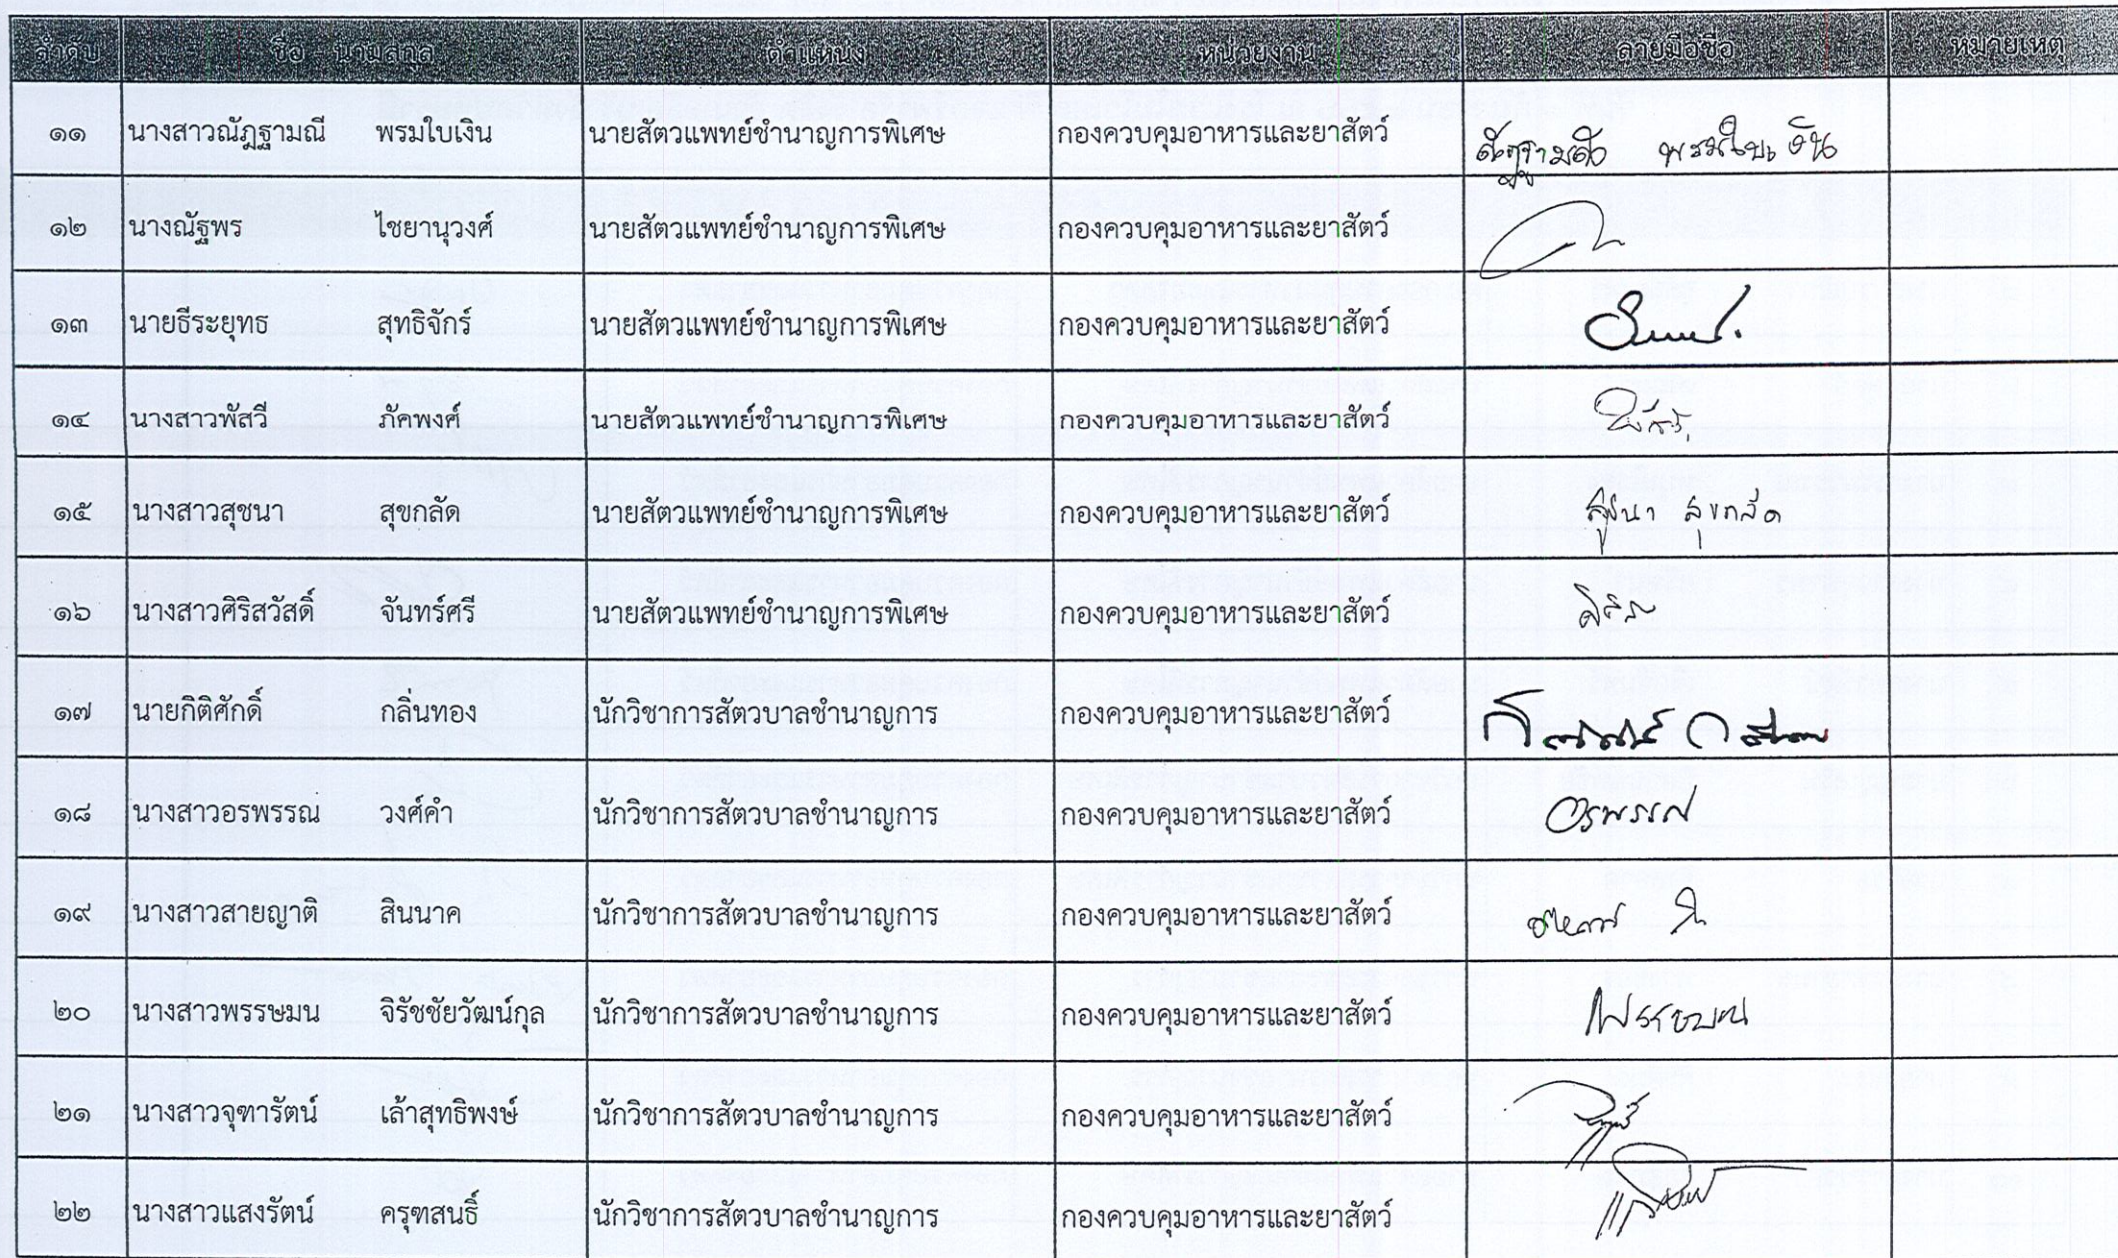 ลำดับ ชื่อ นามสกุล ตำแหน่ง หน่วยงาน ลายมือชื่อ หมายเหตุ
๑๑ นางสาวณัฎฐามณี พรมใบเงิน นายสัตวแพทย์ชำนาญการพิเศษ กองควบคุมอาหารและยาสัตว์ ณัฎฐามณี พรมใบเงิน
๑๒ นางณัฐพร ไชยานุวงศ์ นายสัตวแพทย์ชำนาญการพิเศษ กองควบคุมอาหารและยาสัตว์
๑๓ นายธีระยุทธ สุทธิจักร์ นายสัตวแพทย์ชำนาญการพิเศษ กองควบคุมอาหารและยาสัตว์
๑๔ นางสาวพัสวี ภัคพงศ์ นายสัตวแพทย์ชำนาญการพิเศษ กองควบคุมอาหารและยาสัตว์ พัสวี
๑๕ นางสาวสุชนา สุขกลัด นายสัตวแพทย์ชำนาญการพิเศษ กองควบคุมอาหารและยาสัตว์ สุชนา สุขกลัด
๑๖ นางสาวศิริสวัสดิ์ จันทร์ศรี นายสัตวแพทย์ชำนาญการพิเศษ กองควบคุมอาหารและยาสัตว์
๑๗ นายกิติศักดิ์ กลิ่นทอง นักวิชาการสัตวบาลชำนาญการ กองควบคุมอาหารและยาสัตว์
๑๘ นางสาวอรพรรณ วงศ์คำ นักวิชาการสัตวบาลชำนาญการ กองควบคุมอาหารและยาสัตว์ อรพรรณ
๑๙ นางสาวสายญาติ สินนาค นักวิชาการสัตวบาลชำนาญการ กองควบคุมอาหารและยาสัตว์
๒๐ นางสาวพรรษมน จิรัชชัยวัฒน์กุล นักวิชาการสัตวบาลชำนาญการ กองควบคุมอาหารและยาสัตว์ พรรษมน
๒๑ นางสาวจุฑารัตน์ เล้าสุทธิพงษ์ นักวิชาการสัตวบาลชำนาญการ กองควบคุมอาหารและยาสัตว์
๒๒ นางสาวแสงรัตน์ ครุฑสนธิ์ นักวิชาการสัตวบาลชำนาญการ กองควบคุมอาหารและยาสัตว์